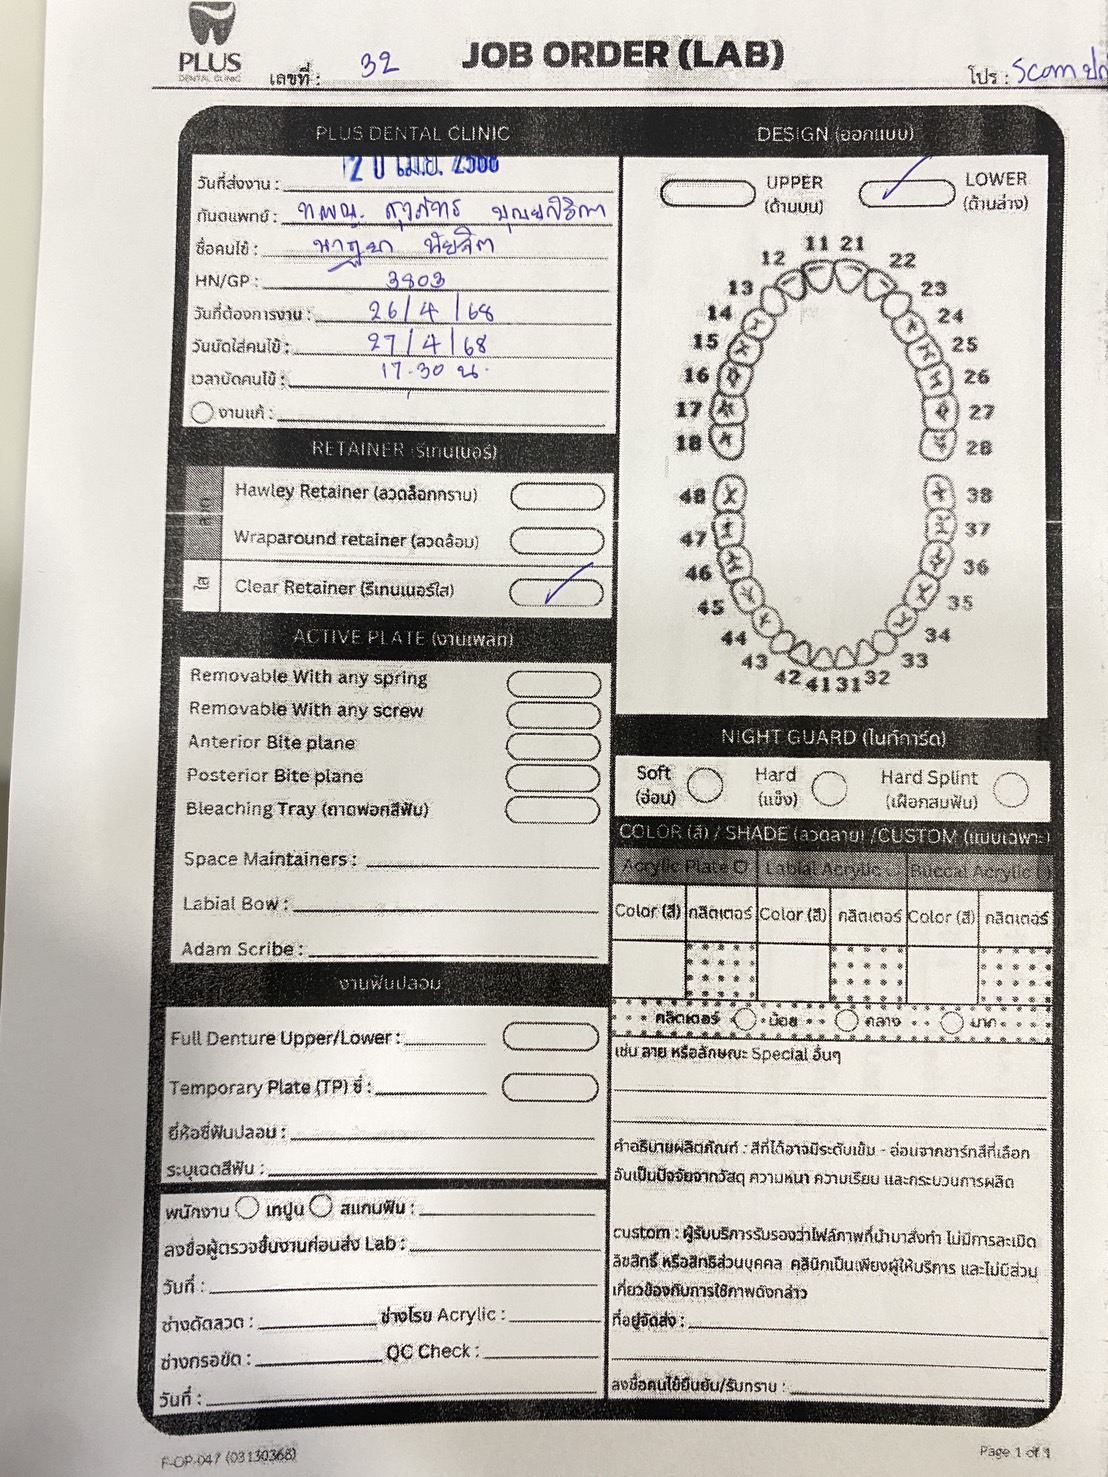 PLUS
DENTAL CLINIC
เลขที่ : 32
JOB ORDER (LAB)
โปร : Scan
PLUS DENTAL CLINIC
วันที่ส่งงาน : 20 เม.ย. 2568
ทันตแพทย์ : ทพญ.
ชื่อคนไข้ :
HN/GP : 3803
วันที่ต้องการงาน : 26/4/68
วันนัดใส่คนไข้ : 27/4/68
เวลานัดคนไข้ : 17.30 น.
งานแก้ :
RETAINER (รีเทนเนอร์)
ลวด
Hawley Retainer (ลวดล็อกกราม)
Wraparound retainer (ลวดล้อม)
ใส
Clear Retainer (รีเทนเนอร์ใส)
ACTIVE PLATE (งานเพลท)
Removable With any spring
Removable With any screw
Anterior Bite plane
Posterior Bite plane
Bleaching Tray (ถาดฟอกสีฟัน)
Space Maintainers :
Labial Bow :
Adam Scribe :
งานฟันปลอม
Full Denture Upper/Lower :
Temporary Plate (TP) ซี่ :
ยี่ห้อซี่ฟันปลอม :
ระบุเฉดสีฟัน :
พนักงาน เทปูน สแกนฟัน :
ลงชื่อผู้ตรวจชิ้นงานก่อนส่ง Lab :
วันที่ :
ช่างดัดลวด : ช่างโรย Acrylic :
ช่างกรอขัด : QC Check :
วันที่ :
DESIGN (ออกแบบ)
UPPER
(ด้านบน)
LOWER
(ด้านล่าง)
11 21
12 22
13 23
14 24
15 25
16 26
17 27
18 28
48 38
47 37
46 36
45 35
44 34
43 33
42 41 31 32
NIGHT GUARD (ไนท์การ์ด)
Soft
(อ่อน)
Hard
(แข็ง)
Hard Splint
(เฝือกสบฟัน)
COLOR (สี) / SHADE (ลวดลาย) /CUSTOM (แบบเฉพาะ)
Acrylic Plate Labial Acrylic Buccal Acrylic
Color (สี) กลิตเตอร์ Color (สี) กลิตเตอร์ Color (สี) กลิตเตอร์
กลิตเตอร์ น้อย กลาง มาก
เช่น ลาย หรือลักษณะ Special อื่นๆ
คำอธิบายผลิตภัณฑ์ : สีที่ได้อาจมีระดับเข้ม - อ่อนจากชาร์ทสีที่เลือก
อันเป็นปัจจัยจากวัสดุ ความหนา ความเรียบ และกระบวนการผลิต
custom : ผู้รับบริการรับรองว่าไฟล์ภาพที่นำมาสั่งทำ ไม่มีการละเมิด
ลิขสิทธิ์ หรือสิทธิส่วนบุคคล คลินิกเป็นเพียงผู้ให้บริการ และไม่มีส่วน
เกี่ยวข้องกับการใช้ภาพดังกล่าว
ที่อยู่จัดส่ง :
ลงชื่อคนไข้ยืนยัน/รับทราบ :
F-OP-047 (03130368)
Page 1 of 1